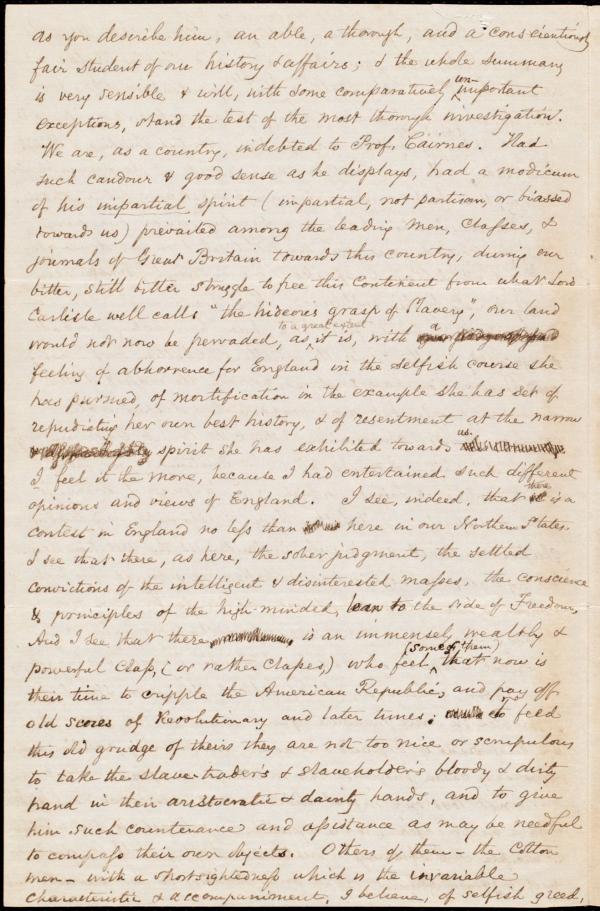 as you describe him, an able, a thorough, and a conscientiously
fair student of our history & affairs; & the whole summary
is very sensible & will, with some comparatively un-important
exceptions, stand the test of the most thorough investigation.
We are, as a country, indebted to Prof. Cairnes. Had
such candour & good sense as he displays, had a modicum
of his impartial spirit (impartial, not partisan, or biassed
towards us) prevailed among the leading men, classes, &
journals of Great Britain towards this country, during our
bitter, still bitter struggle to free this Continent from what Lord
Carlisle well calls "the hideous grasp of Slavery", our land
would not now be pervaded, as to a great extent it is, with a
feeling of abhorrence for England in the selfish course she
has pursued, of mortification in the example she has set of
repudiating her own best history, & of resentment at the narrow
spirit she has exhibited towards us.
I feel it the more, because I had entertained such different
opinions and views of England. I see, indeed, that there is a
contest in England no less than here in our Northern States.
I see that there, as here, the sober judgment, the settled
convictions of the intelligent & disinterested masses, the conscience
& principles of the high-minded, lean to the side of Freedom,
And I see that there is an immensely wealthy &
powerful class, (or rather classes,) who feel (some of them) that now is
their time to cripple the American Republic, and pay off
old scores of Revolutionary and later times; to feed
this old grudge of theirs they are not too nice or scrupulous
to take the slave-trader's & slaveholder's bloody & dirty
hand in their aristocratic & dainty hands, and to give
him such countenance and assistance as may be needful
to compass their own objects. Others of them – the Cotton
men – with a shortsightedness which is the invariable
characteristic & accompaniment, I believe, of selfish greed,